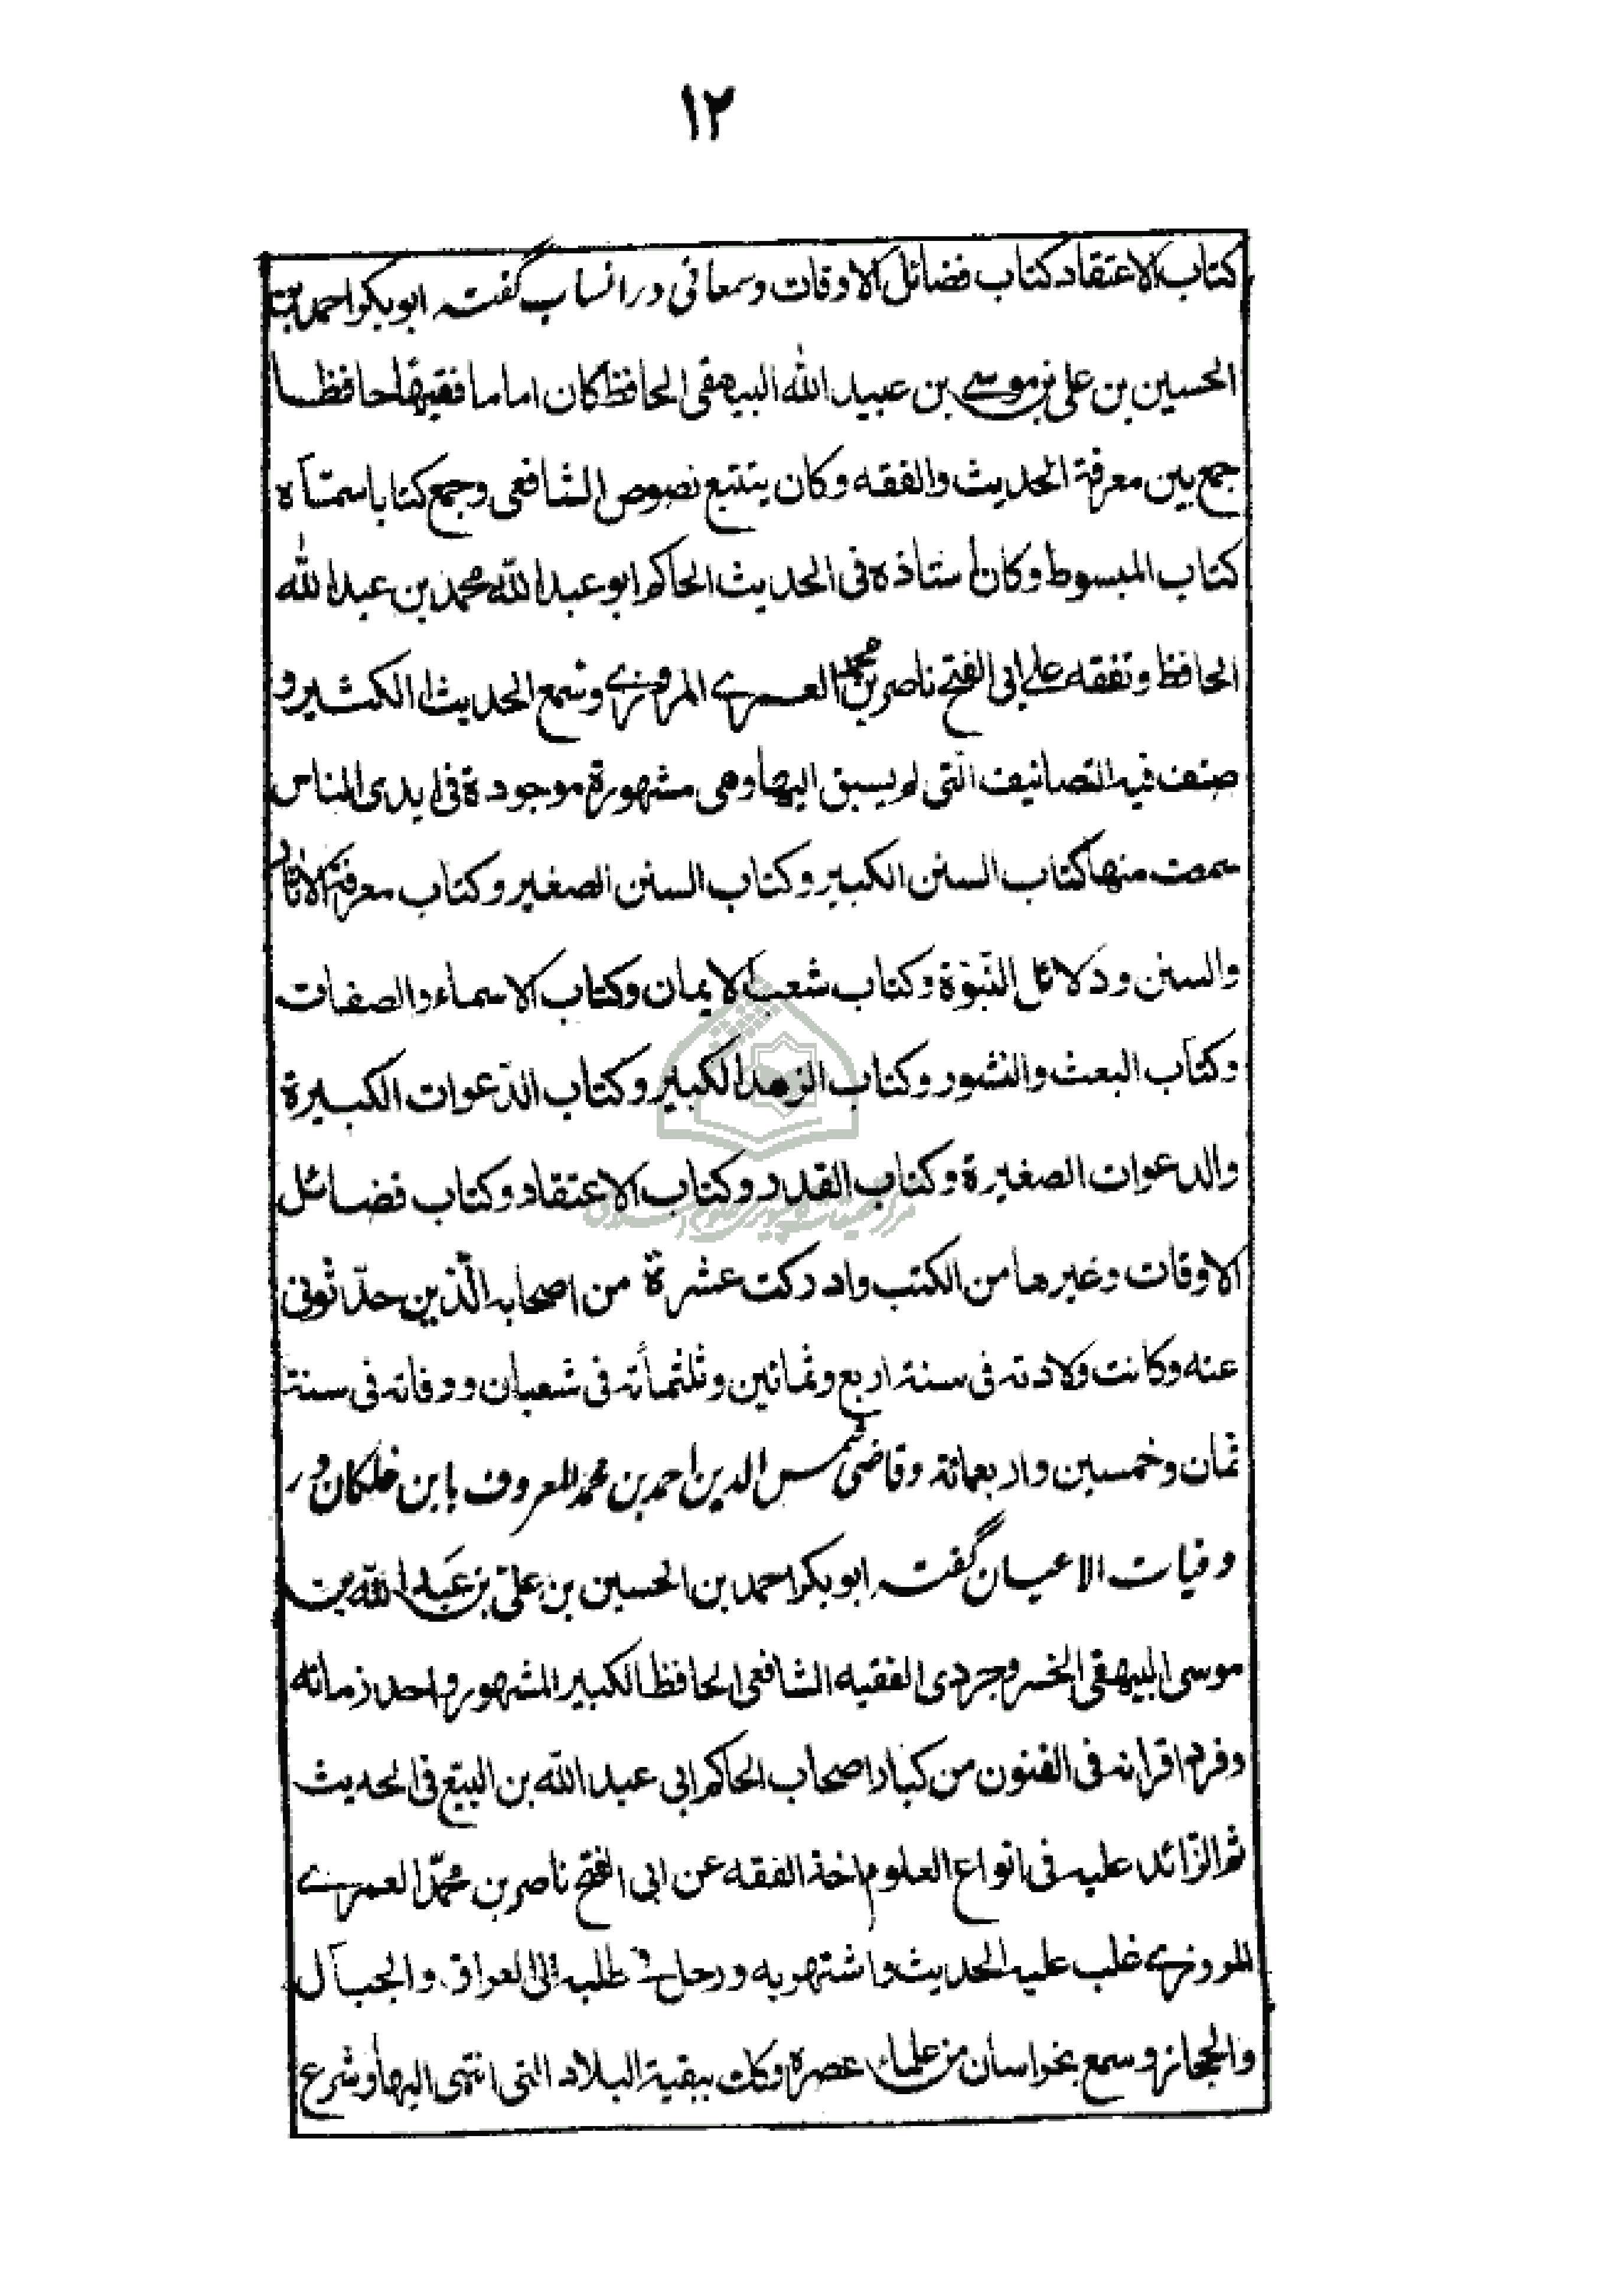 ١٢
كتاب الاعتقاد كتاب فضائل الاوقات وسمعانی در انساب گفته ابو بكر احمد بن
الحسين بن علی بن موسى بن عبيد الله البيهقی الحافظ كان اماما فقيها حافظا
جمع بين معرفة الحديث والفقه وكان يتتبع نصوص الشافعی وجمع كتابا سمّاه
كتاب المبسوط وكان استاذه فی الحديث الحاكم ابو عبد الله محمد بن عبد الله
الحافظ وتفقه علی ابی الفتح ناصر بن محمد العمری المروزی وسمع الحديث الكثير و
صنف فيه التصانيف الّتی لم يسبق اليها وهی مشهورة موجودة فی ايدی الناس
سمعت منها كتاب السنن الكبير وكتاب السنن الصغير وكتاب معرفة الاثار
والسنن ودلائل النّبوّة وكتاب شعب الايمان وكتاب الاسماء والصفات
وكتاب البعث والنشور وكتاب الزهد الكبير وكتاب الدّعوات الكبيرة
والدعوات الصغيرة وكتاب القدر وكتاب الاعتقاد وكتاب فضائل
الاوقات وغيرها من الكتب وادركت عشرة من اصحابه الّذين حدّثونی
عنه وكانت ولادته فی سنة اربع وثمانين وثلثمأته فی شعبان ووفاته فی سنة
ثمان وخمسين واربعمائة وقاضی شمس الدين احمد بن محمد المعروف بابن خلكان در
وفيات الاعيان گفته ابو بكر احمد بن الحسين بن علیّ بن عبد الله بن
موسى البيهقی الخسروجردی الفقيه الشافعی الحافظ الكبير المشهور واحد زمانه
وفرد اقرانه فی الفنون من كبار اصحاب الحاكم ابی عبد الله بن البيّع فی الحديث
ثم الزّائد عليه فی انواع العلوم اخذ الفقه عن ابی الفتح ناصر بن محمّد العمری
المروزی غلب عليه الحديث واشتهر به ورحل فی طلبه الی العراق والجبال
والحجاز وسمع بخراسان من علماء عصره وكذلك ببقية البلاد التی انتهى اليها وشرع